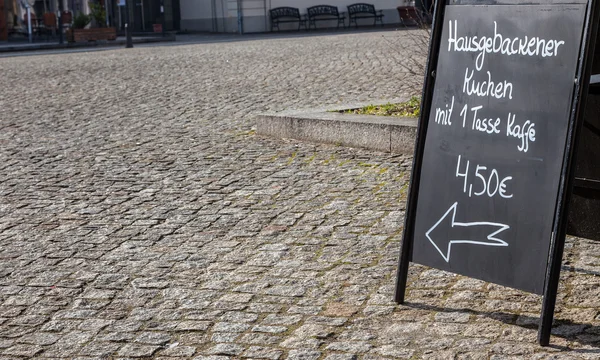 Hausgebackener
Kuchen
mit 1 Tasse Kaffé
4,50€